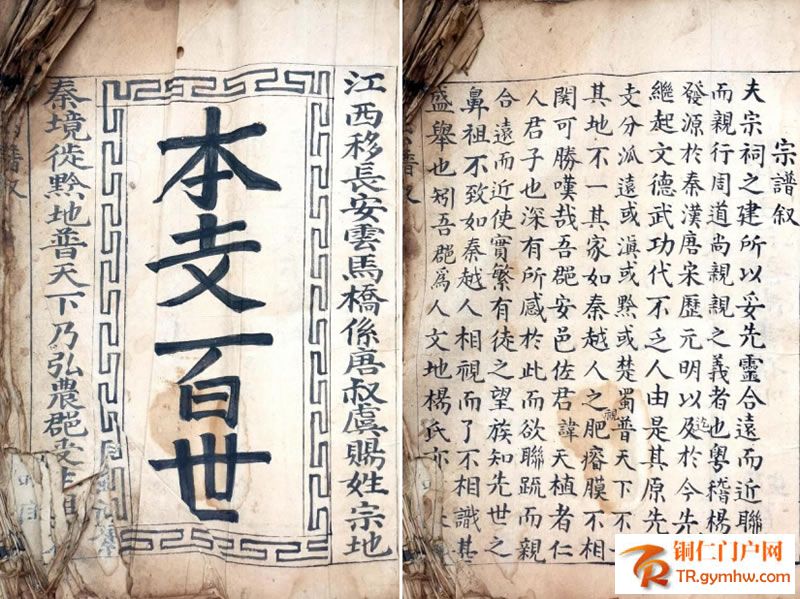 江西移長安雲馬橋係唐叔虞賜姓宗地
本支百世
秦境徙黔地普天下乃弘農郡受
譜叙
宗譜叙
夫宗祠之建所以妥先靈合遠而近聯
而親行周道尚親親之義者也粵稽楊
發源於秦漢唐宋歷元明以及迄於今先
繼起文德武功代不乏人由是其原先
支分泒遠或滇或黔或楚蜀普天下不
其地不一其家如秦越人之視肥瘠膜不相
関可勝嘆哉吾郡安邑佐君諱天植者仁
人君子也深有所感於此而欲聯疏而親
合遠而近使實繁有徒之望族知先世之
鼻祖不致如秦越人相視而了不相識甚
盛舉也矧吾郡爲人文地楊氏亦
譜叙
铜仁门户网
TR.gymhw.com